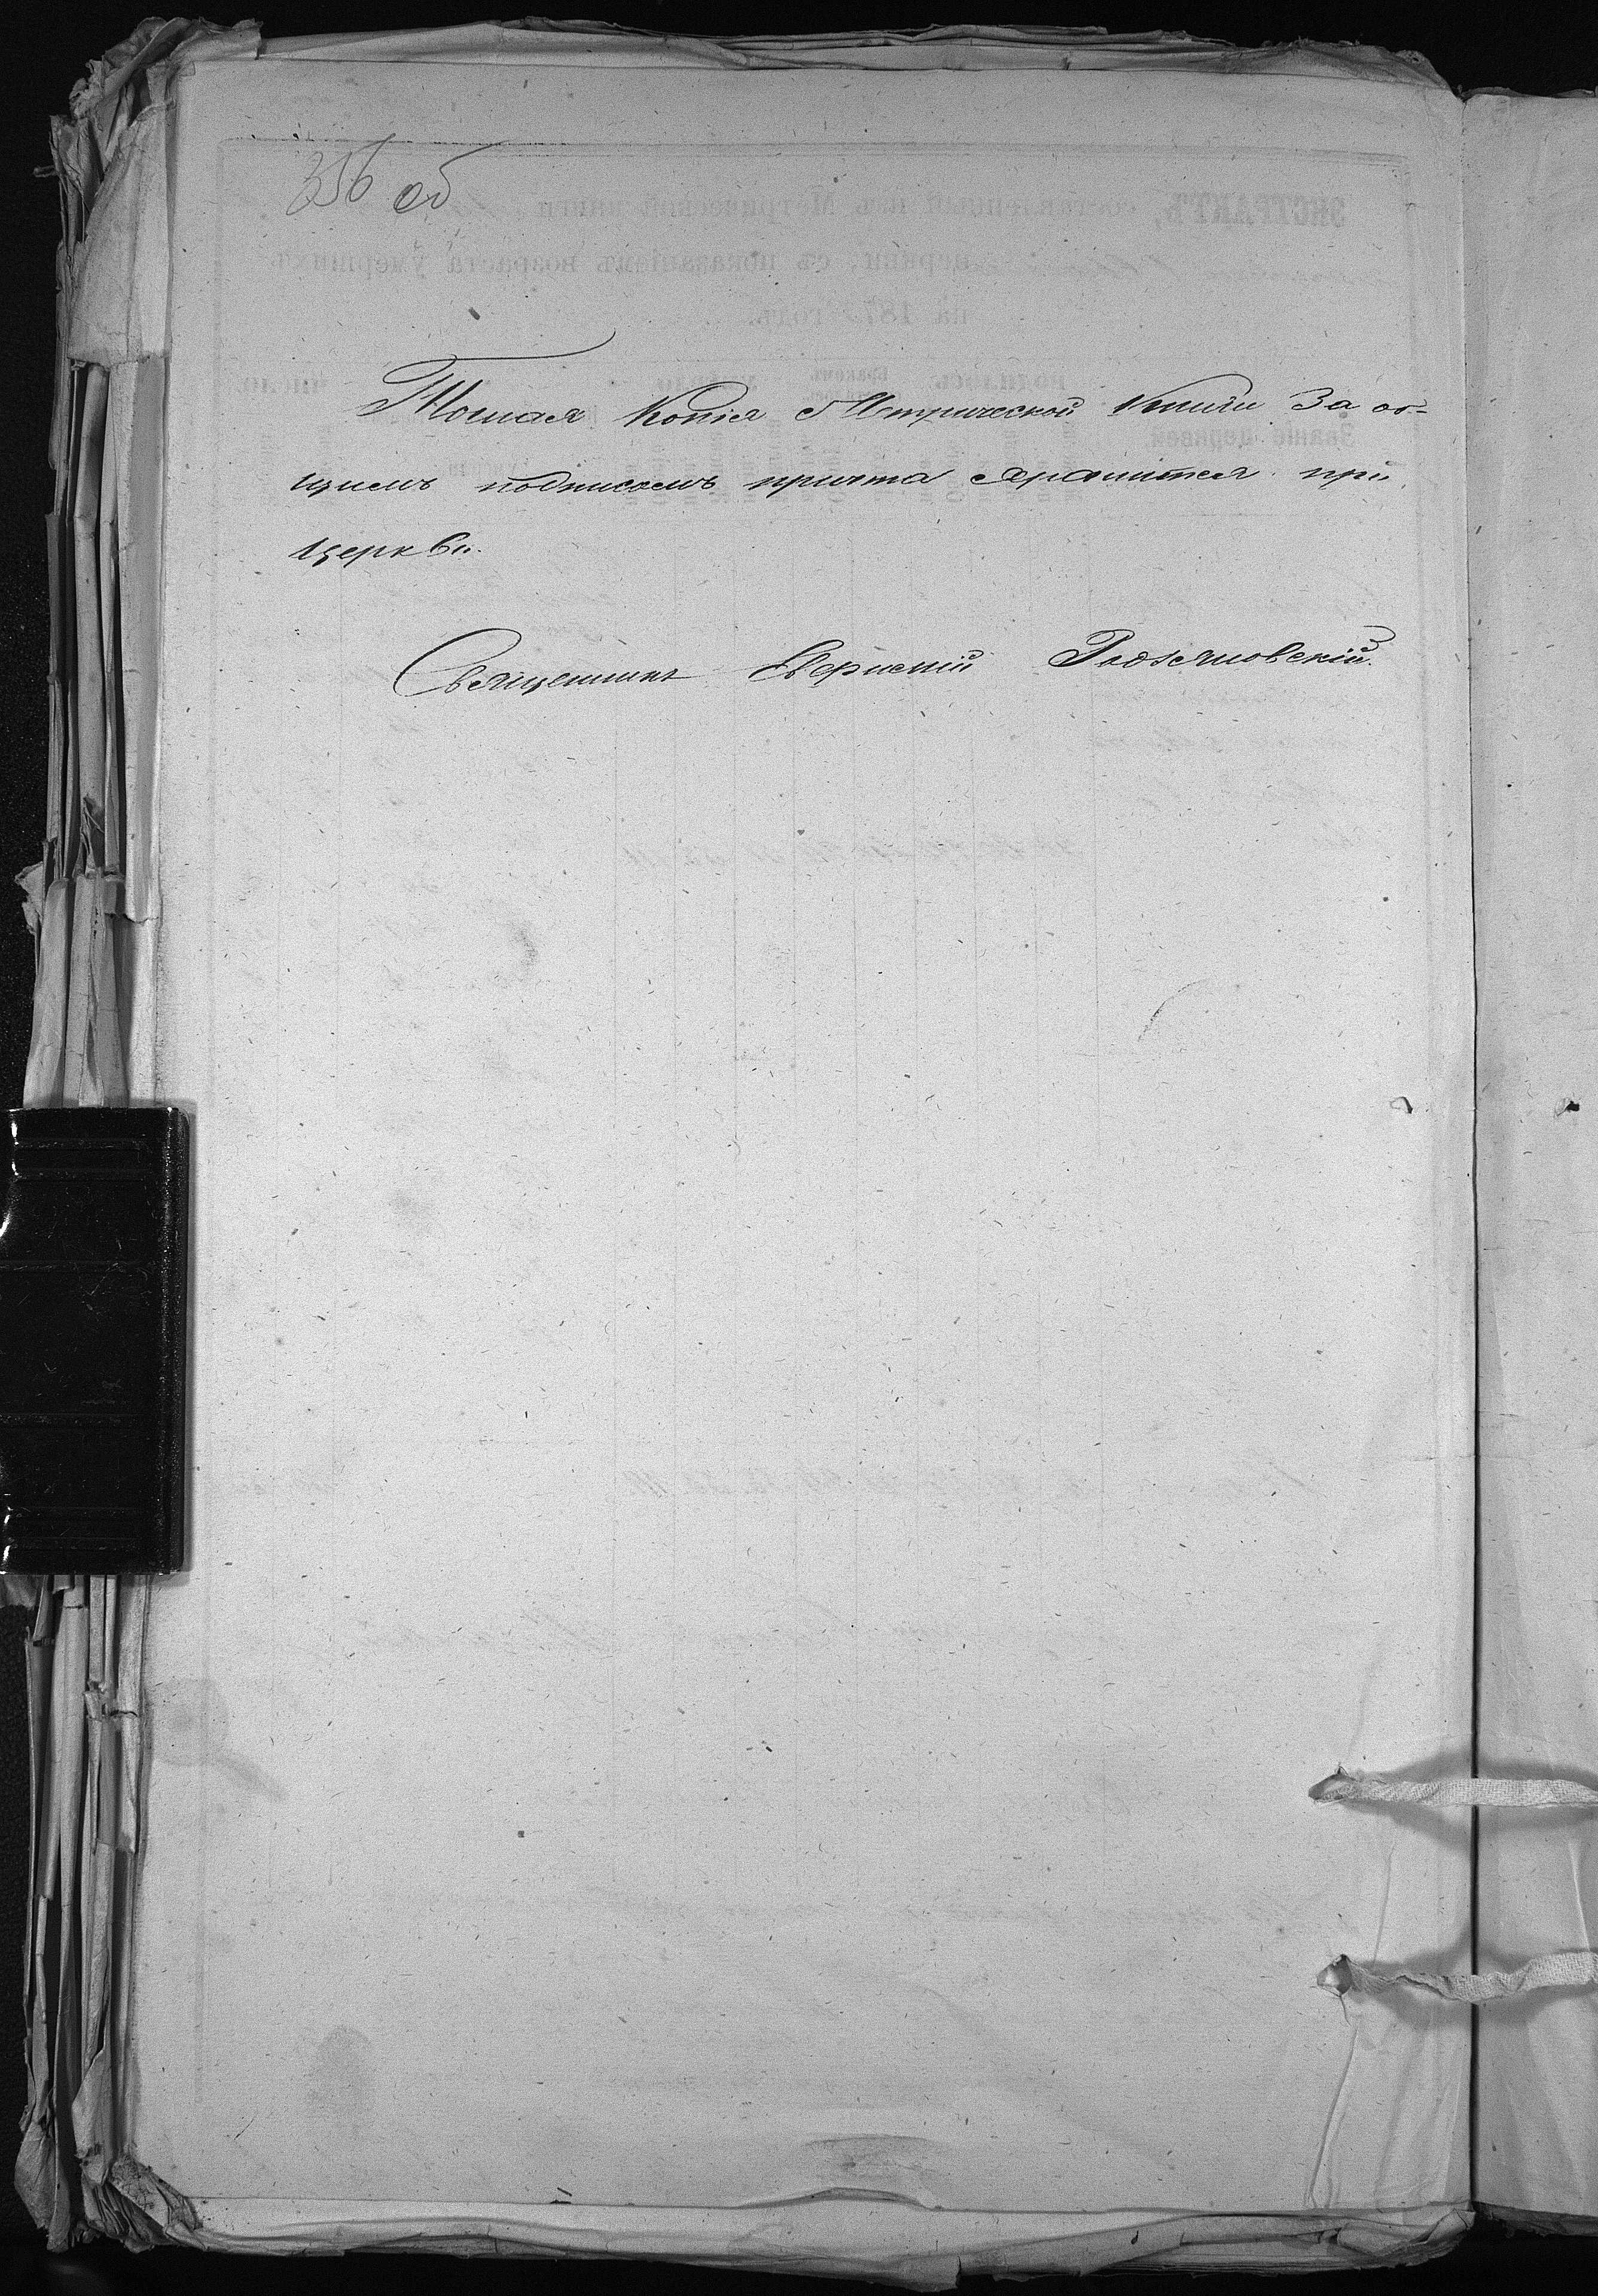 356 об
Точная Копія Метрической Книги За об-
щимъ подписомъ причта хранится при
Церкви.
Священникъ Родзяновскій.